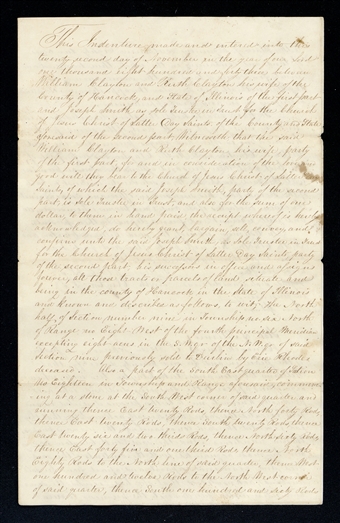 This Indenture, made and entered into this
twenty second day of November in the year of our Lord
one thousand eight hundred and forty three between
William Clayton and Ruth Clayton his wife, of the
County of Hancock and State of Illinois of the first part
and Joseph Smith as sole Trustee in Trust for the Church
of Jesus Christ of Latter Day Saints of the County and State
aforesaid of the second part, Witnesseth that the said
William Clayton and Ruth Clayton his wife, party
of the first part, for and in consideration of the
good will they bear to the Church of Jesus Christ of Latter Day
Saints, of which the said Joseph Smith, party of the second
part, is Sole Trustee in Trust, and also for the Sum of one
dollar to them in hand paid, the receipt whereof is hereby
acknowledged, do hereby grant, bargain, sell, convey, and
confirm unto the said Joseph Smith, as Sole Trustee in Trust
for the Church of Jesus Christ of Latter Day Saints, party
of the second part, his successors in office, and assigns
forever, all those tracts or parcels of land, situate and
being in the county of Hancock in the State of Illinois
and known and described as follows, to wit: The North
half of Section number nine in Township No. six North
of Range no Eight West of the fourth principal Meridian
excepting eight acres in the of the of said
Section nine previously sold to by
deceased. Also a part of the South East quarter of Section
no Eighteen in Township and Range aforesaid, commencing
at a stone at the South West corner of said quarter and
running thence East twenty Rods, thence North forty Rods,
thence East twenty Rods, thence South twenty Rods, thence
East twenty six and two thirds Rods, thence North sixty rods,
thence East forty five and one third Rods, thence North
Eighty Rods to the North line of said quarter, thence West
one hundred and twelve Rods to the North West corner
of said quarter, thence South one hundred and sixty Rods